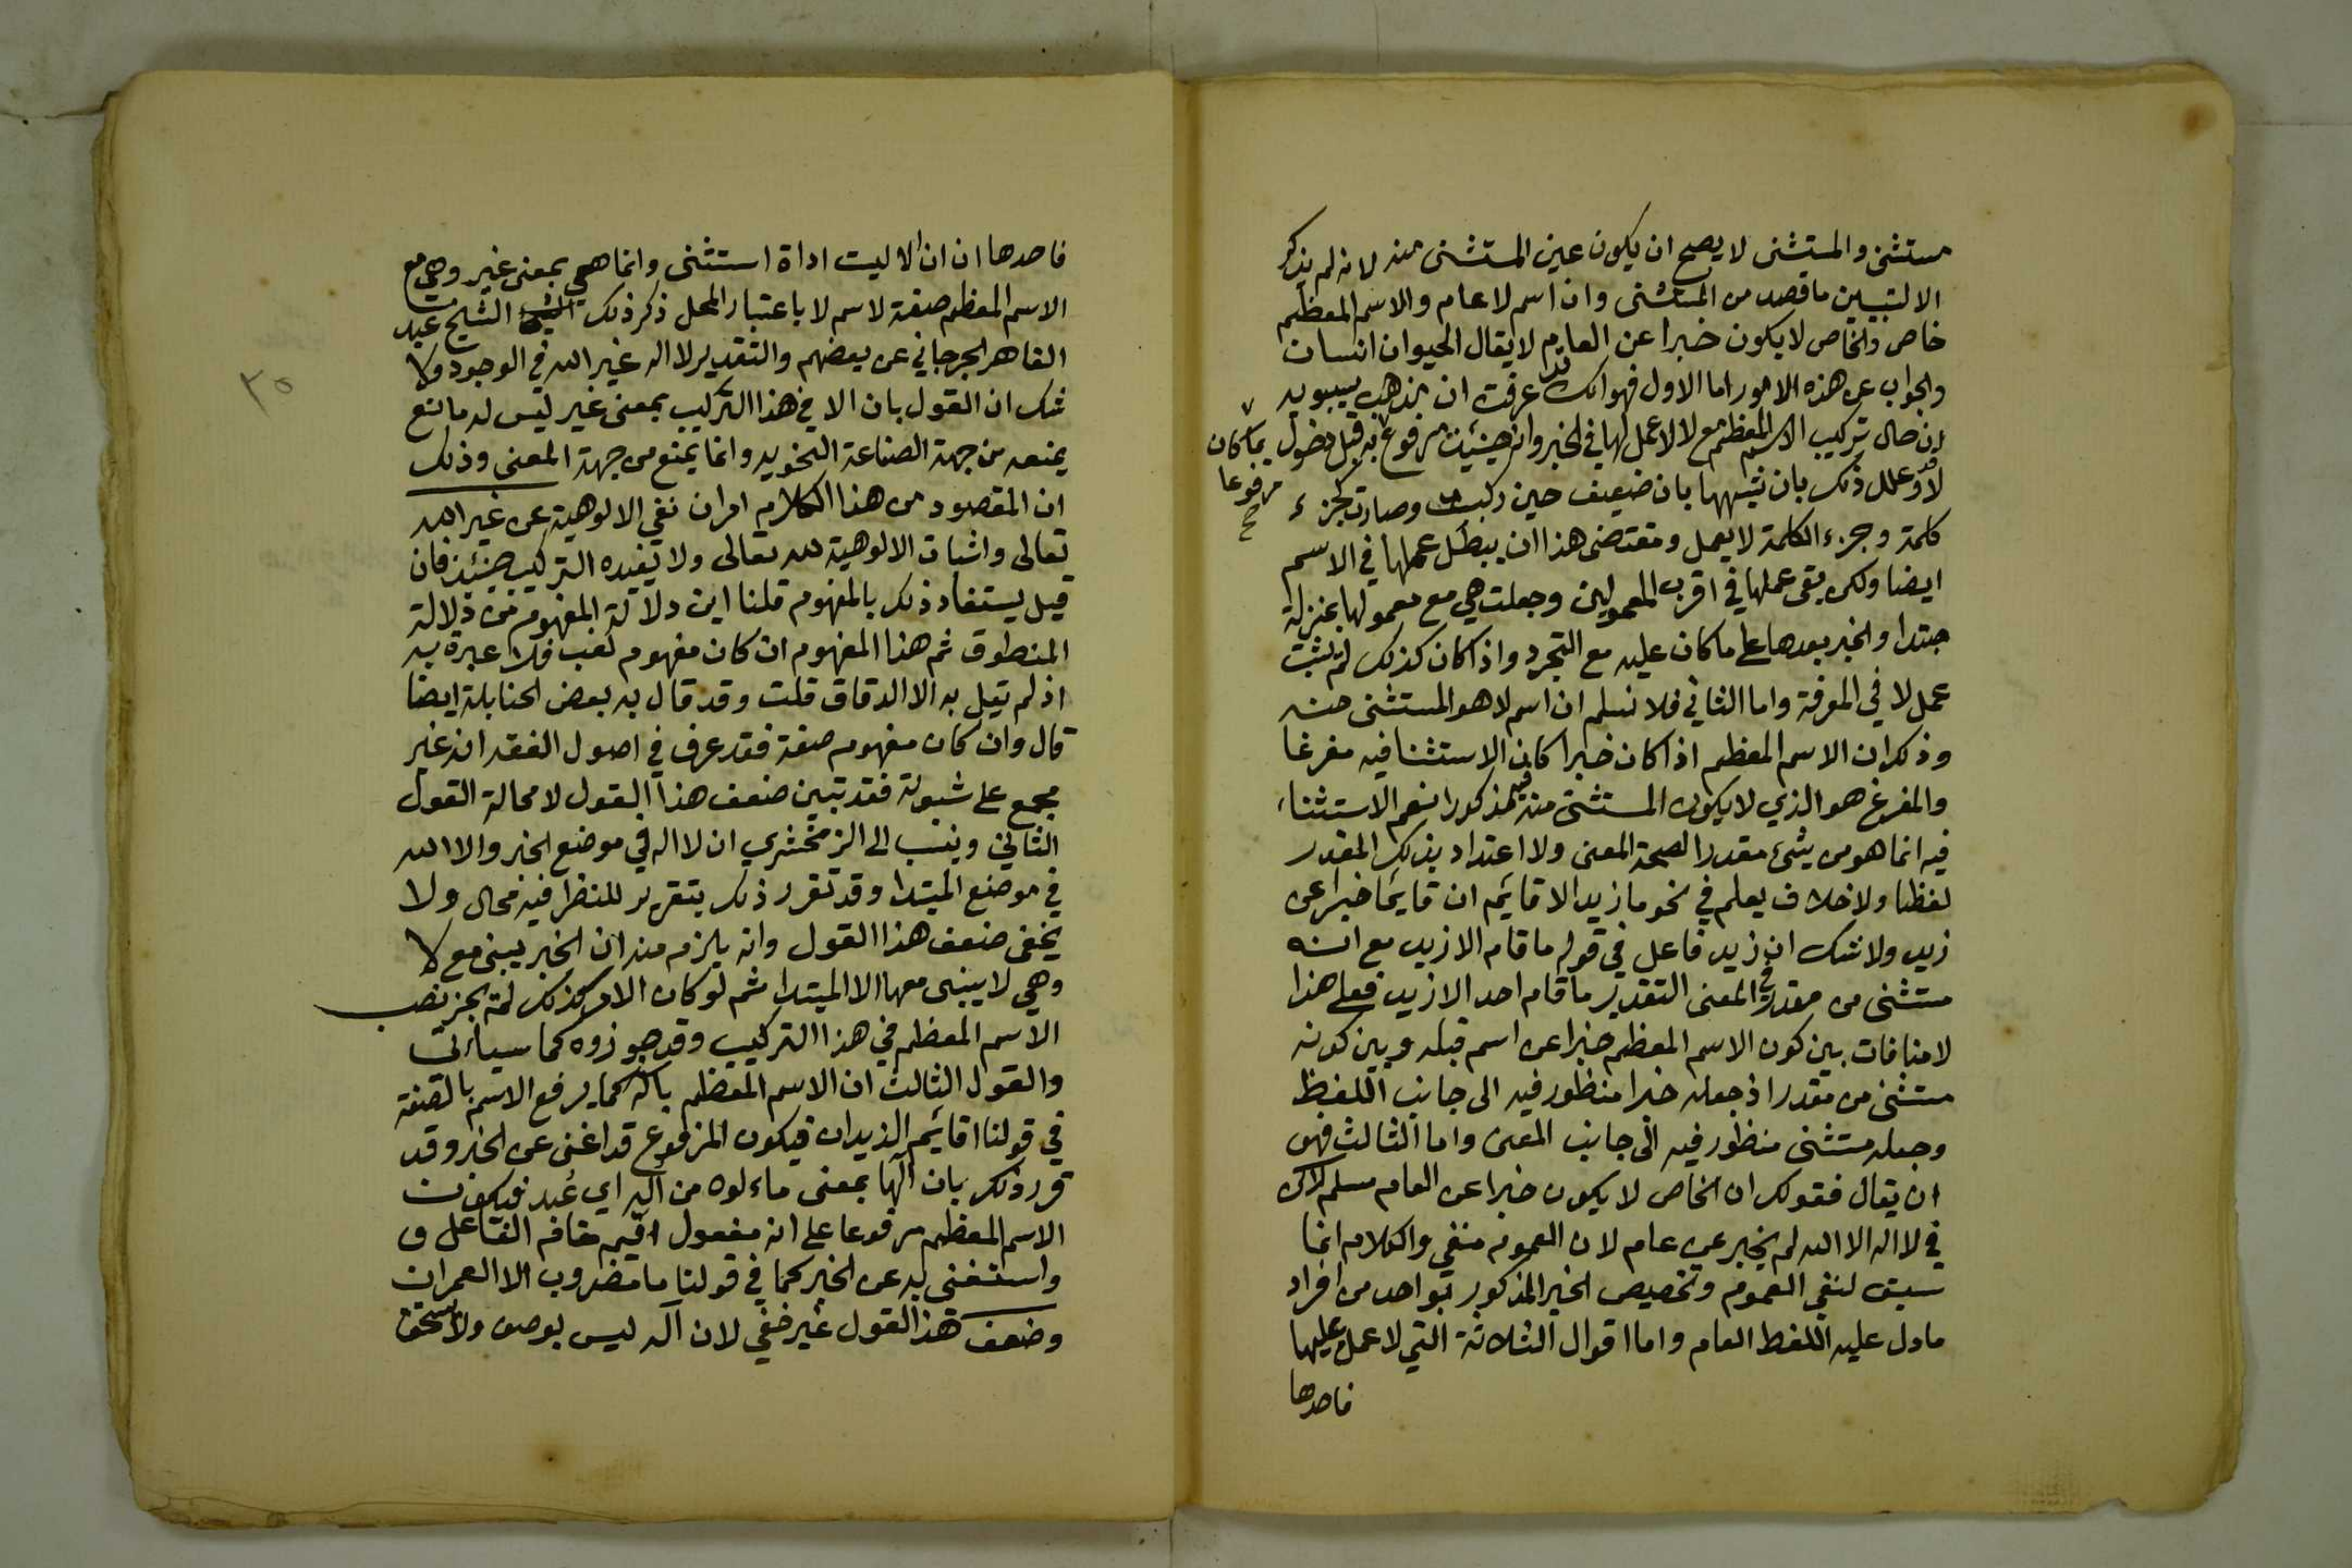 مستثنى والمستثنى لا يصح ان يكون عين المستثنى منه لانه لم يذكر
الا لتبيين ما قصد من المستثنى وان اسم لا عام والاسم المعظم
خاص والخاص لا يكون خبرا عن العام لا يقال الحيوان انسان
والجواب عن هذه الامور اما الاول فهو انك قد عرفت ان مذهب سيبويه
ان حال تركيب الاسم المعظم مع لا لا عمل لها في الخبر وانه حينئذ مرفوع بما كان مرفوعا صح به قبل دخول
لا وقد علل ذلك بان شبهها بان ضعيف حين ركبت وصارت كجزء
كلمة وجزء الكلمة لا يعمل ومقتضى هذا ان يبطل عملها في الاسم
ايضا ولكن بقى عملها في اقرب المعمولين وجعلت هي مع معمولها بمنزلة
مبتدا والخبر بعدها على ما كان عليه مع التجرد واذا كان كذلك لم يثبت
عمل لا في المعرفة واما الثاني فلا نسلم ان اسم لا هو المستثنى منه
وذلك ان الاسم المعظم اذا كان خبرا كان الاستثنا فيه مفرغا
والمفرغ هو الذي لا يكون المستثنى منه فيه مذكورا نعم الاستثناء
فيه انما هو من شيء مقدر لصحة المعنى ولا اعتداد بذلك المقدر
لفظا ولا خلاف يعلم في نحو ما زيد الا قايم ان قايما خبر عن
زيد ولا شك ان زيد فاعل في قوله ما قام الا زيد مع انه
مستثنى من مقدر في المعنى التقدير ما قام احد الا زيد فعلى هذا
لا منافات بين كون الاسم المعظم خبرا عن اسم قبله وبين كونه
مستثنى من مقدر اذ جعله خبرا منظور فيه الى جانب اللفظ
وجعله مستثنى منظور فيه الى جانب المعنى واما الثالث فهو
ان يقال فقولك ان الخاص لا يكون خبرا عن العام مسلم لكن
في لا اله الا الله لم يخبر عن عام لان العموم منفي والكلام انما
سيق لنفي العموم وتخصيص الخبر المذكور بواحد من افراد
ما دل عليه اللفظ العام واما اقوال الثلاثة التي لا عمل عليها
فاحدها
فاحدها ان ان الا ليت اداة استثنى وانما هي بمعنى غير وهي مع
الاسم المعظم صفة لاسم لا باعتبار المحل ذكر ذلك الشيخ عبد
القاهر الجرجاني عن بعضهم والتقدير لا اله غير الله في الوجود ولا
شك ان القول بان الا في هذا التركيب بمعنى غير ليس له مانع
يمنعه من جهة الصناعة النحويه وانما يمنع من جهة المعنى وذلك
ان المقصود من هذا الكلام امران نفي الالوهية عن غير الله
تعالى واثبات الالوهية لله تعالى ولا يفيده التركيب حينئذ فان
قيل يستفاد ذلك بالمفهوم قلنا اين دلالة المفهوم من دلالة
المنطوق ثم هذا المفهوم ان كان مفهوم لقب فلا عبرة به
اذ لم يقل به الا الدقاق قلت وقد قال به بعض الحنابلة ايضا
قال وان كان مفهوم صفة فقد عرف في اصول الفقه انه غير
مجمع على ثبوته فقد تبين ضعف هذا القول لا محالة القول
الثاني وينسب الى الزمخشري ان لا اله في موضع الخبر والا الله
في موضع المبتدا وقد تقرر ذلك بتقرير للنظر فيه مجال ولا
يخفى ضعف هذا القول وانه يلزم منه ان الخبر يبنى مع لا
وهي لا يبنى معها الا المبتدا ثم لو كان الامر كذلك لم يجز نصب
الاسم المعظم في هذا التركيب وقد جوزوه كما سياتي
والقول الثالث ان الاسم المعظم باله كما يرفع الاسم بالصفة
في قولنا اقائم الزيدان فيكون المرفوع قد اغنى عن الخبر وقد
قرر ذلك بان الها بمعنى مالوه من اله اي عبد فيكون
الاسم المعظم مرفوعا على انه مفعول اقيم مقام الفاعل و
واستغنى به عن الخبر كما في قولنا ما مضروب الا العمران
وضعف هذا القول غير خفي لان اله ليس بوصف ولا يستحق
٣٥